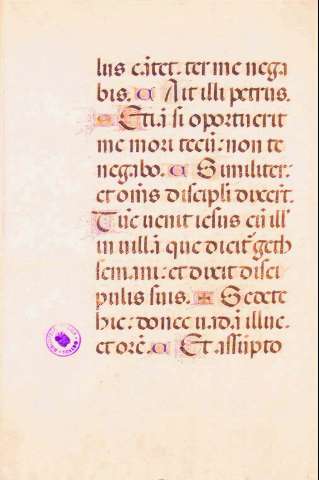 lus cātet. ter me nega
bis. Ait illi petrus.
Etiā si oportuerit
me mori tecū: non te
negabo. Similiter:
et om̄s discipli dixer̄t.
Tūc uenit iesus cū ill'
in uillā que dicit̄ geth
semani: et dixit disci
pulis suis. Sedete
hic: donec uadā illuc.
et orē. Et assūpto